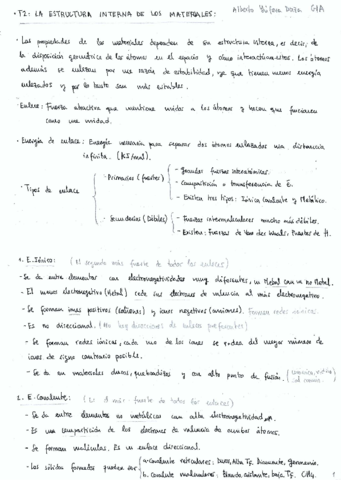 • T2: LA ESTRUCTURA INTERNA DE LOS MATERIALES:
• Las propiedades de los materiales dependen de su estructura interna, es decir, de
la disposición geométrica de los átomos en el espacio y cómo interaccionan estos. Los átomos
además se enlazan por una razón de estabilidad, ya que tienen menos energía
enlazados y por lo tanto son más estables.
• Enlace: Fuerza atractiva que mantiene unidos a los átomos y hacen que funcionen
como una unidad.
• Energía de enlace: Energía necesaria para separar dos átomos enlazados una distancia
infinita. (KJ/mol).
• Tipos de enlace
Primarios (fuertes)
- Grandes fuerzas interatómicas.
- Compartición o transferencia de E.
- Existen tres tipos: Iónico, Covalente y Metálico.
Secundarios (Débiles)
- Fuerzas intermoleculares mucho más débiles.
- Existen: Fuerzas de Van der Waals, Puentes de H.
1. E. Iónico: (El segundo más fuerte de todos los enlaces)
- Se da entre elementos con electronegatividades muy diferentes, un Metal con un No Metal.
- El menos electronegativo (Metal) cede sus electrones de valencia al más electronegativo.
- Se forman iones positivos (cationes) y iones negativos (aniones). Forman redes
- Es no direccional. (No hay direcciones de enlace preferentes)
- Se forman redes iónicas, cada uno de los iones se rodea del mayor número de
iones de signo contrario posible.
- Se da en materiales duros, quebradizos y con alto punto de fusión.
2. E. Covalente: (El más fuerte de todos los enlaces)
- Se da entre elementos no metálicos con alta electronegatividad
- Es una compartición de los electrones de valencia de ambos átomos.
- Se forman moléculas. Es un enlace direccional.
- Los sólidos formados pueden ser
a. Covalentes reticulares: Duros, Alta Tf. Diamante, Germanio.
b. Covalentes moleculares: Blando, aislante, baja Tf. CH4.